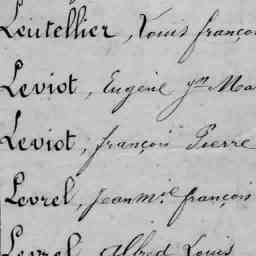 Leutellier, Louis françoi
Leviot, Eugène Ma
Leviot, françois Pierre
Levrel, Jean M.ie françois
Levrel, Alfred Louis